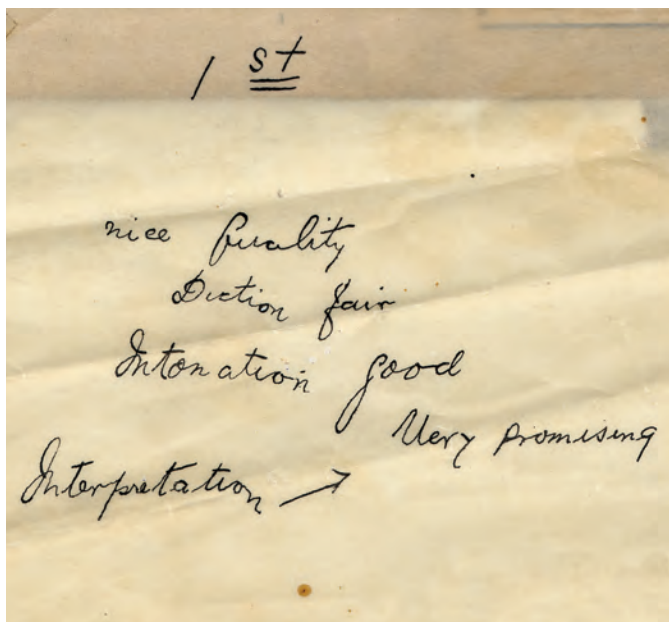 1 st
nice Quality
Diction fair
Intonation good
Very promising
Interpretation →